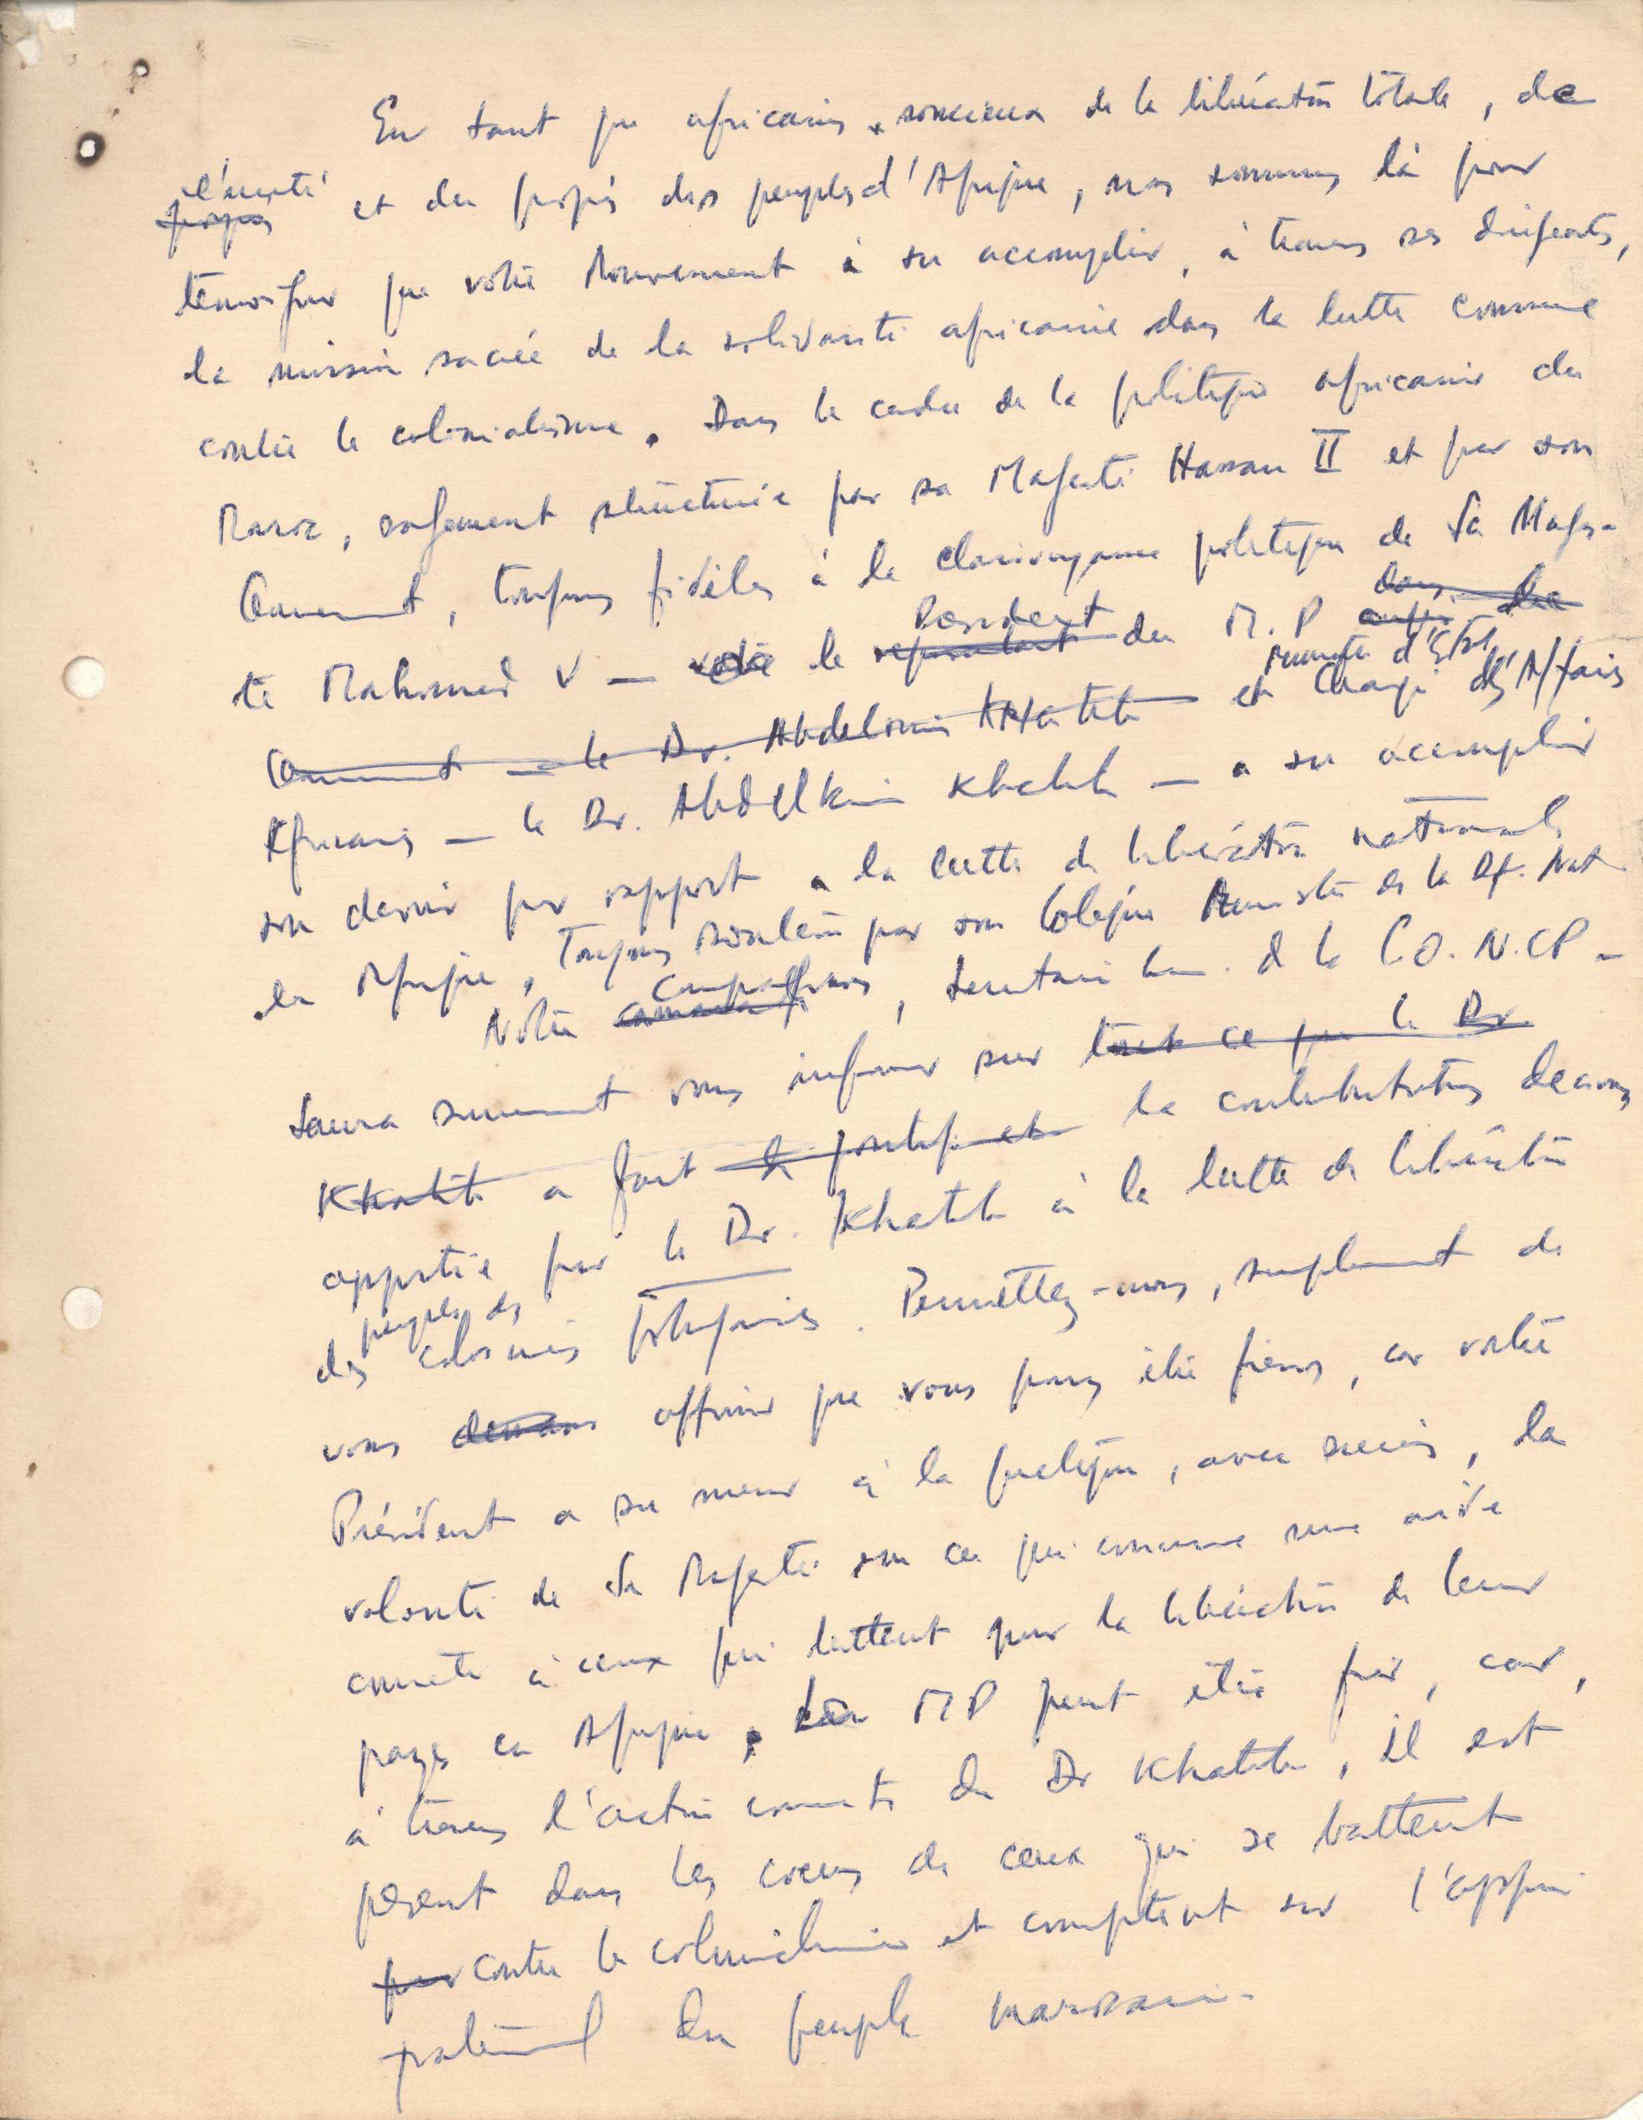 En tant que africains, soucieux de la libération totale, de
l'unité
progrès et du progrés des peuples d'Afrique, nous sommes là pour
témoigner que votre Mouvement à su accomplir, à travers ses dirigeants,
la mission sacrée de la solidarité africaine dans la lutte commune
contre le colonialisme. Dans le cadre de la politique africaine du
Maroc, sagement structurée par sa Majesté Hassan II et par son
Gouvernement, toujours fidèles à la clairvoyance politique de Sa Majes-
té Mahomed V — votre le représentant Président du M.P dans le
Ministre d'État
Gouvernement — le Dr. Abdelkrim Khatib et Chargé des Affaires
Africaines — le Dr. Abdelkrim Khatib — a su accomplir
son devoir par rapport a la lutte de libération nationale
en Afrique, toujours soutenu par son collègue Ministre de la Df. Nat.
Notre camarade compagnons, Secrétaire Gen. de la C.O.N.C.P.
saura sûrement vous informer sur tout ce que le Dr.
Khatib a fait la contribution décisive
apportée par le Dr. Khatib à la lutte de libération
des peuples des colonies portugaises. Permettez-nous, simplement de
vous affirmer que vous pouvez être fiers, car votre
Président a su mener à la pratique, avec succès, la
volonté de Sa Majesté en ce qui concerne une aide
concrète à ceux qui luttent pour la libération de leurs
pays en Afrique. Le MP peut être fier, car,
à travers l'action concrète du Dr Khatib, il est
présent dans les coeurs de ceux qui se battent
pour contre le colonialisme et comptent sur l'appui
fraternel du peuple marocain.